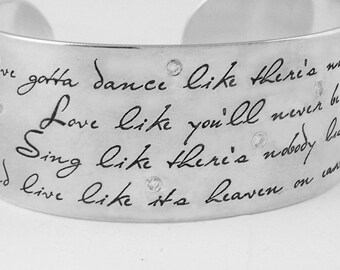 gotta dance like there's
Love like you'll never
Sing like there's nobody
live like its heaven on